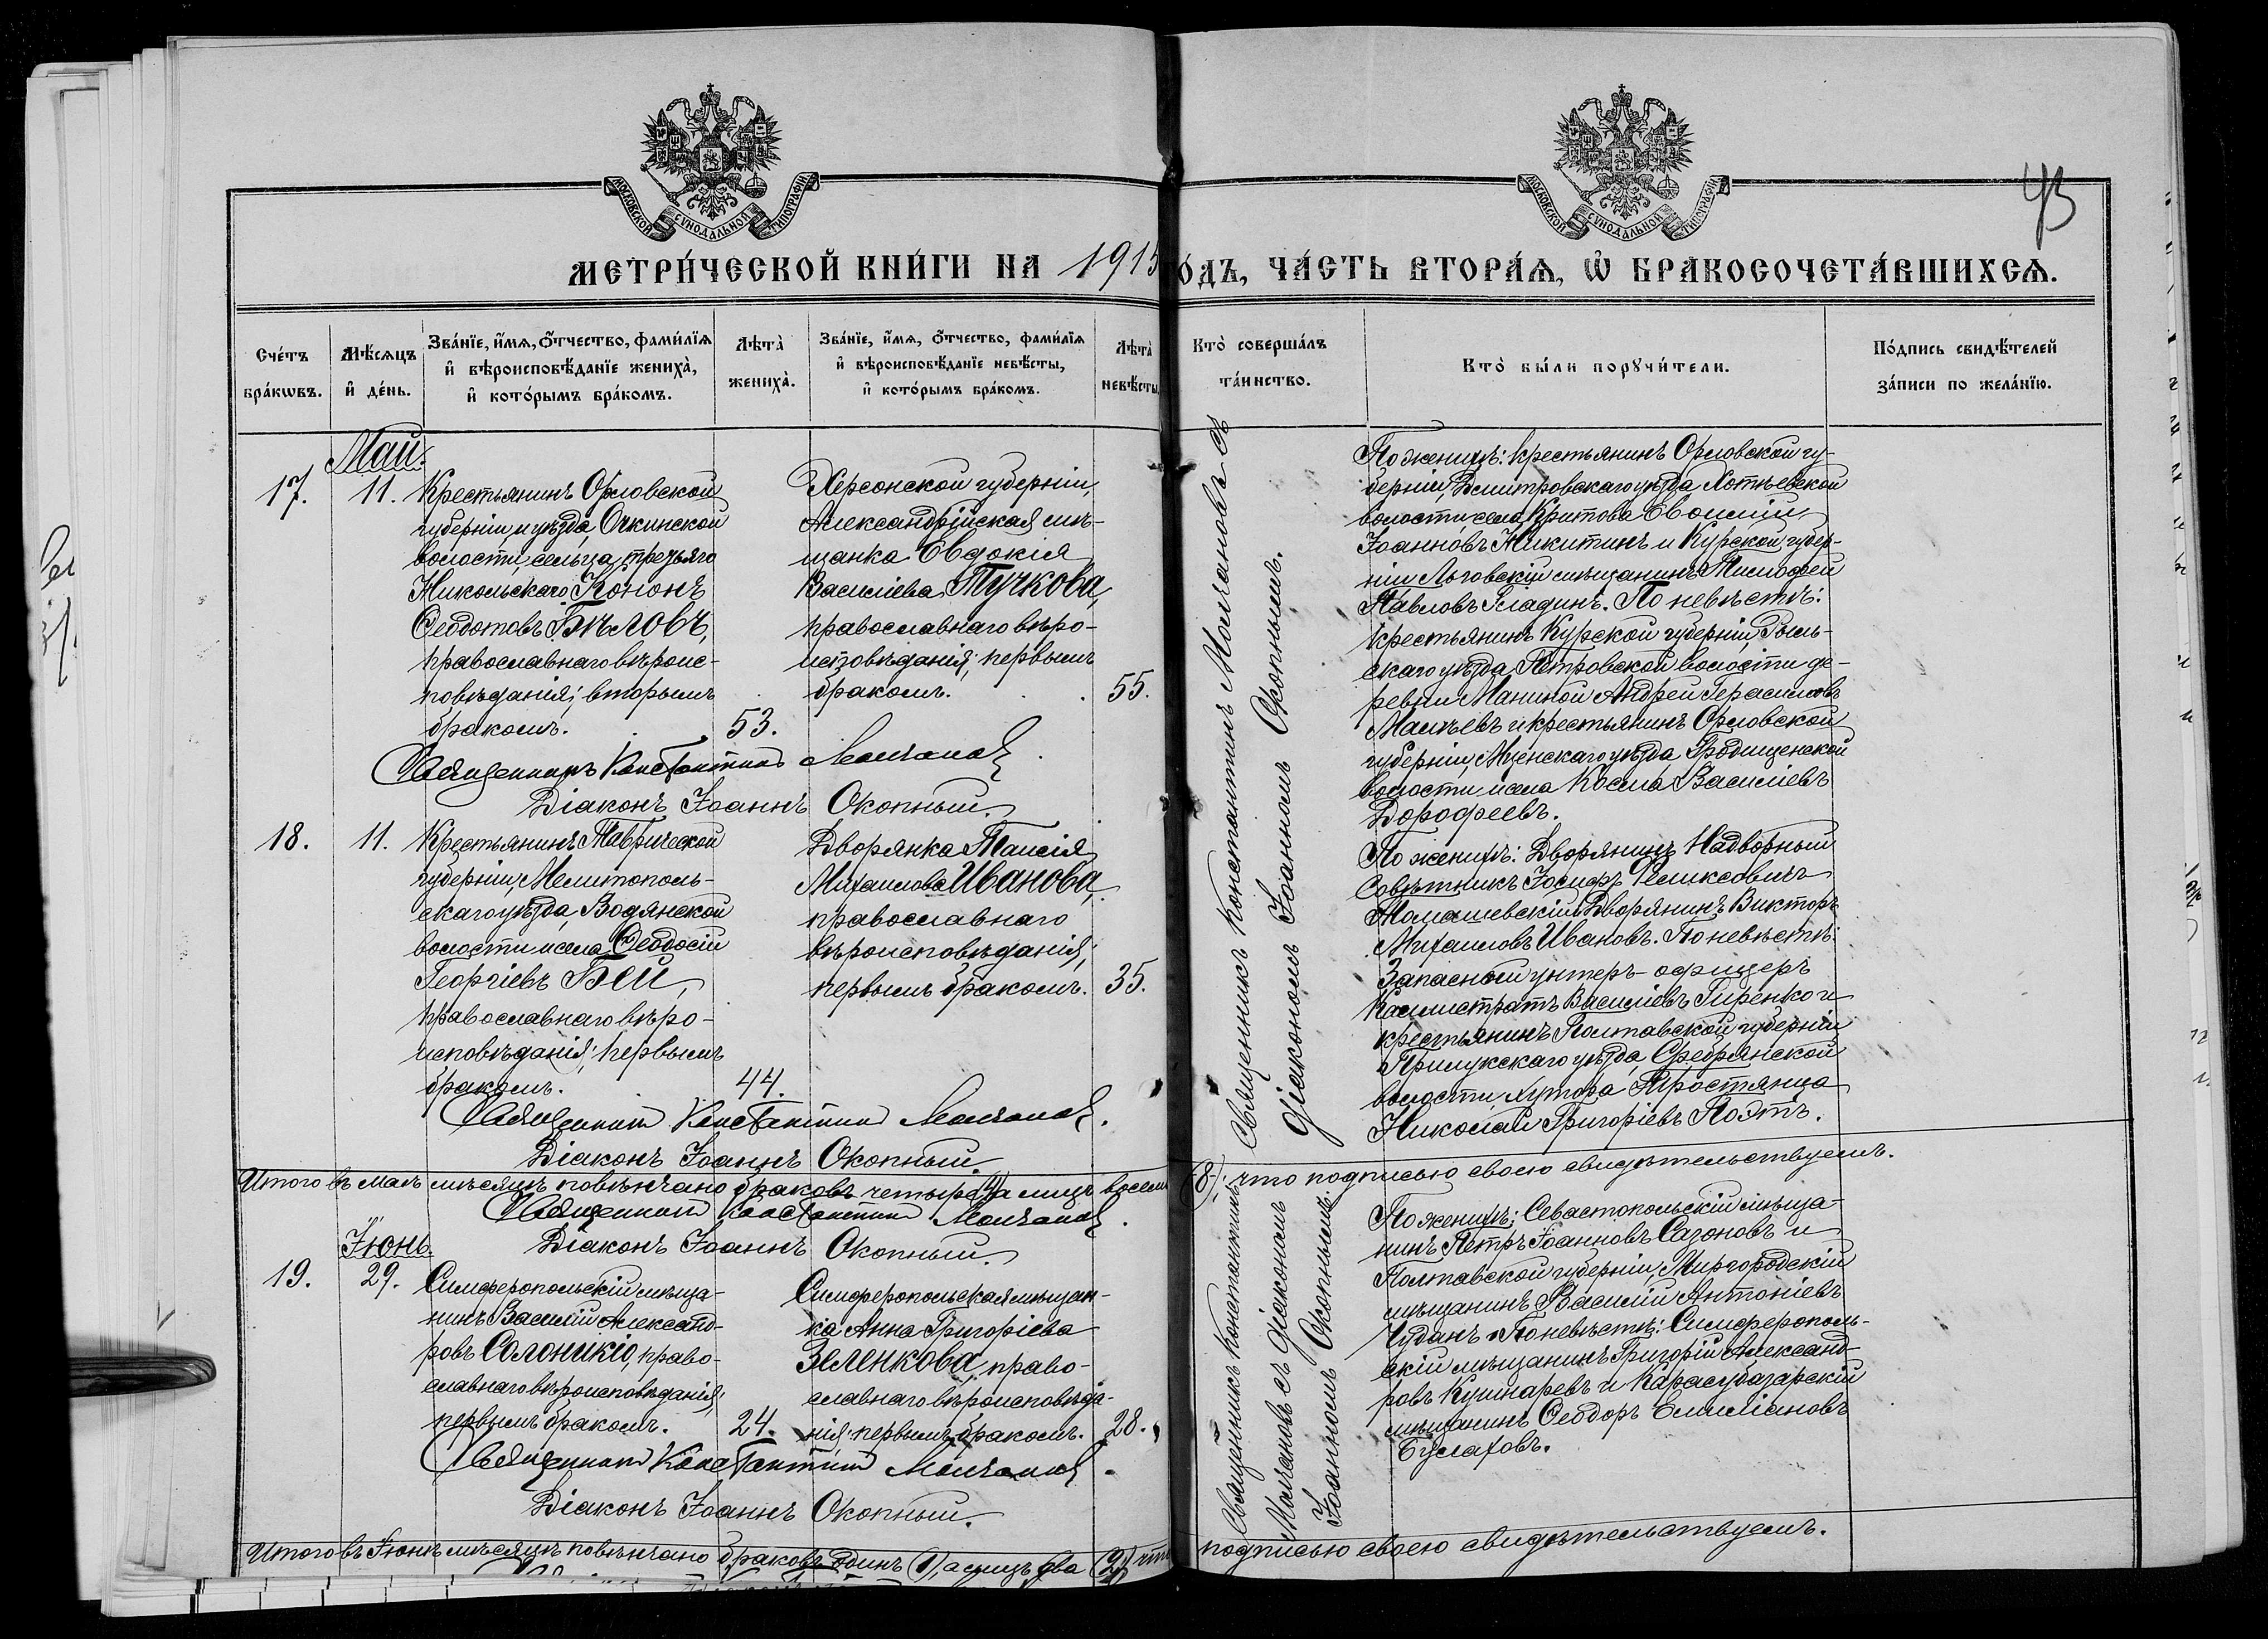 МОСКОВСКОЙ СУНОДАЛЬНОЙ ТИПОГРАФІИ
МОСКОВСКОЙ СУНОДАЛЬНОЙ ТИПОГРАФІИ
МЕТРИ́ЧЕСКОЙ КНИ́ГИ НА 1915
О́ДЪ, ЧА́СТЬ ВТОРА́Ѧ, Ѡ҆ БРАКОСОЧЕТА́ВШИХСѦ.
Сче́тъ бра́кѡвъ.
Мѣ́сѧцъ и҆ де́нь.
Зва́нїе, и҆́мѧ, ѻ҆́тчество, фами́лїѧ
и҆ вѣроисповѣ́данїе жениха̀,
и҆ кото́рымъ бра́комъ.
Лѣта̀ жениха̀.
Зва́нїе, и҆́мѧ, ѻ҆́тчество, фами́лїѧ
и҆ вѣроисповѣ́данїе невѣ́сты,
и҆ кото́рымъ бра́комъ.
Лѣта̀ невѣ́сты
Кто̀ соверша́лъ та́инство.
Кто̀ бы́ли порꙋчи́тели.
По́дпись свидѣ́телей за́писи по жела́нїю.
Май.
17.
11.
Крестьянинъ Орловской
губерніи, и уѣзда, Очкинской
волости, сельца третьяго
Никольскаго Кононъ
Ѳеодотовъ Бѣловъ,
православнаго вѣроис-
повѣданія; вторымъ
бракомъ.
53.
Херсонской губерніи,
Александрійская мѣ-
щанка Евдокія
Василіева Тучкова,
православнаго вѣро-
исповѣданія; первымъ
бракомъ.
55.
Священникъ Константинъ Молчановъ
Діаконъ Іоаннъ Окопный.
Священникъ Константинъ Молчановъ съ
діакономъ Іоанномъ Окопнымъ.
По женихѣ: крестьянинъ Орловской гу-
берніи, Дмитровскаго уѣзда Хотьевской
волости, села Критова Евѳимій
Іоанновъ Никитинъ и Курской губер-
ніи Льговскій мѣщанинъ Тимоѳей
Павловъ Гладинъ. По невѣстѣ:
крестьянинъ Курской губерніи, Рыль-
скаго уѣзда, Петровской волости де-
ревни Маниной Андрей Герасимовъ
Малѣевъ и крестьянинъ Орловской
губерніи, Мценскаго уѣзда Городищенской
волости и села Косма Василіевъ
Дороѳеевъ.
18.
11.
Крестьянинъ Таврической
губерніи, Мелитополь-
скаго уѣзда, Водянской
волости и села Ѳеодосій
Георгіевъ Бей,
православнаго вѣро-
исповѣданія; первымъ
бракомъ.
44.
Дворянка Таисія
Михаилова Иванова,
православнаго
вѣроисповѣданія;
первымъ бракомъ.
35.
Священникъ Константинъ Молчановъ.
Діаконъ Іоаннъ Окопный.
По женихѣ: Дворянинъ Надворный
Совѣтникъ Іосифъ Феликсовичъ
Томашевскій и Дворянинъ Викторъ
Михаиловъ Ивановъ. По невѣстѣ:
Запасной унтеръ-офицеръ
Каллистратъ Василіевъ Гиренко и
крестьянинъ Полтавской губерніи
Прилукскаго уѣзда, Сребрянской
волости, хутора Тростянца
Николай Григоріевъ Поэтъ.
Итого въ маѣ мѣсяцѣ повѣнчано браковъ четыре (4), а лицъ восемь
(8); что подписью своею свидѣтельствуемъ.
Священникъ Константинъ Молчановъ.
Діаконъ Іоаннъ Окопный.
Іюнь
19.
29.
Симферопольскій мѣща-
нинъ Василій Александ-
ровъ Солоникіо, право-
славнаго вѣроисповѣданія;
первымъ бракомъ.
24.
Симферопольская мѣщан-
ка Анна Григоріева
Зеленкова, право-
славнаго вѣроисповѣда-
нія; первымъ бракомъ.
28.
Священникъ Константинъ Молчановъ.
Діаконъ Іоаннъ Окопный.
Священникъ Константинъ
Молчановъ съ діакономъ
Іоанномъ Окопнымъ.
По женихѣ: Севастопольскій мѣща-
нинъ Петръ Іоанновъ Сагоновъ и
Полтавской губерніи, Миргородскій
мѣщанинъ Василій Антоніевъ
Чуданъ. По невѣстѣ: Симферополь-
скій мѣщанинъ Григорій Александ-
ровъ Кушнаревъ и Карасубазарскій
мѣщанинъ Ѳеодоръ Емиліановъ
Булаховъ.
Итого въ Іюнѣ мѣсяцѣ повѣнчано браковъ одинъ (1), а лицъ два (2), что
подписью своею свидѣтельствуемъ.